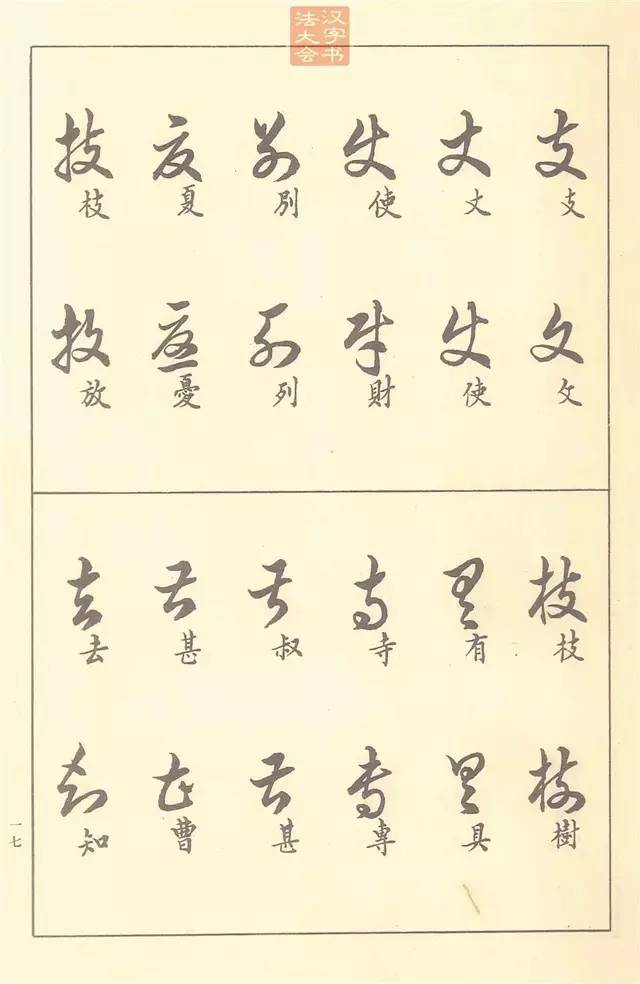 汉字书
法大会
支 支 攵 攵
丈 丈 使 使
使 使 財 財
別 別 列 列
夏 夏 憂 憂
技 枝 放 放
枝 枝 樹 樹
有 有 具 具
寺 寺 專 專
叔 叔 甚 甚
甚 甚 曹 曹
去 去 知 知
一七